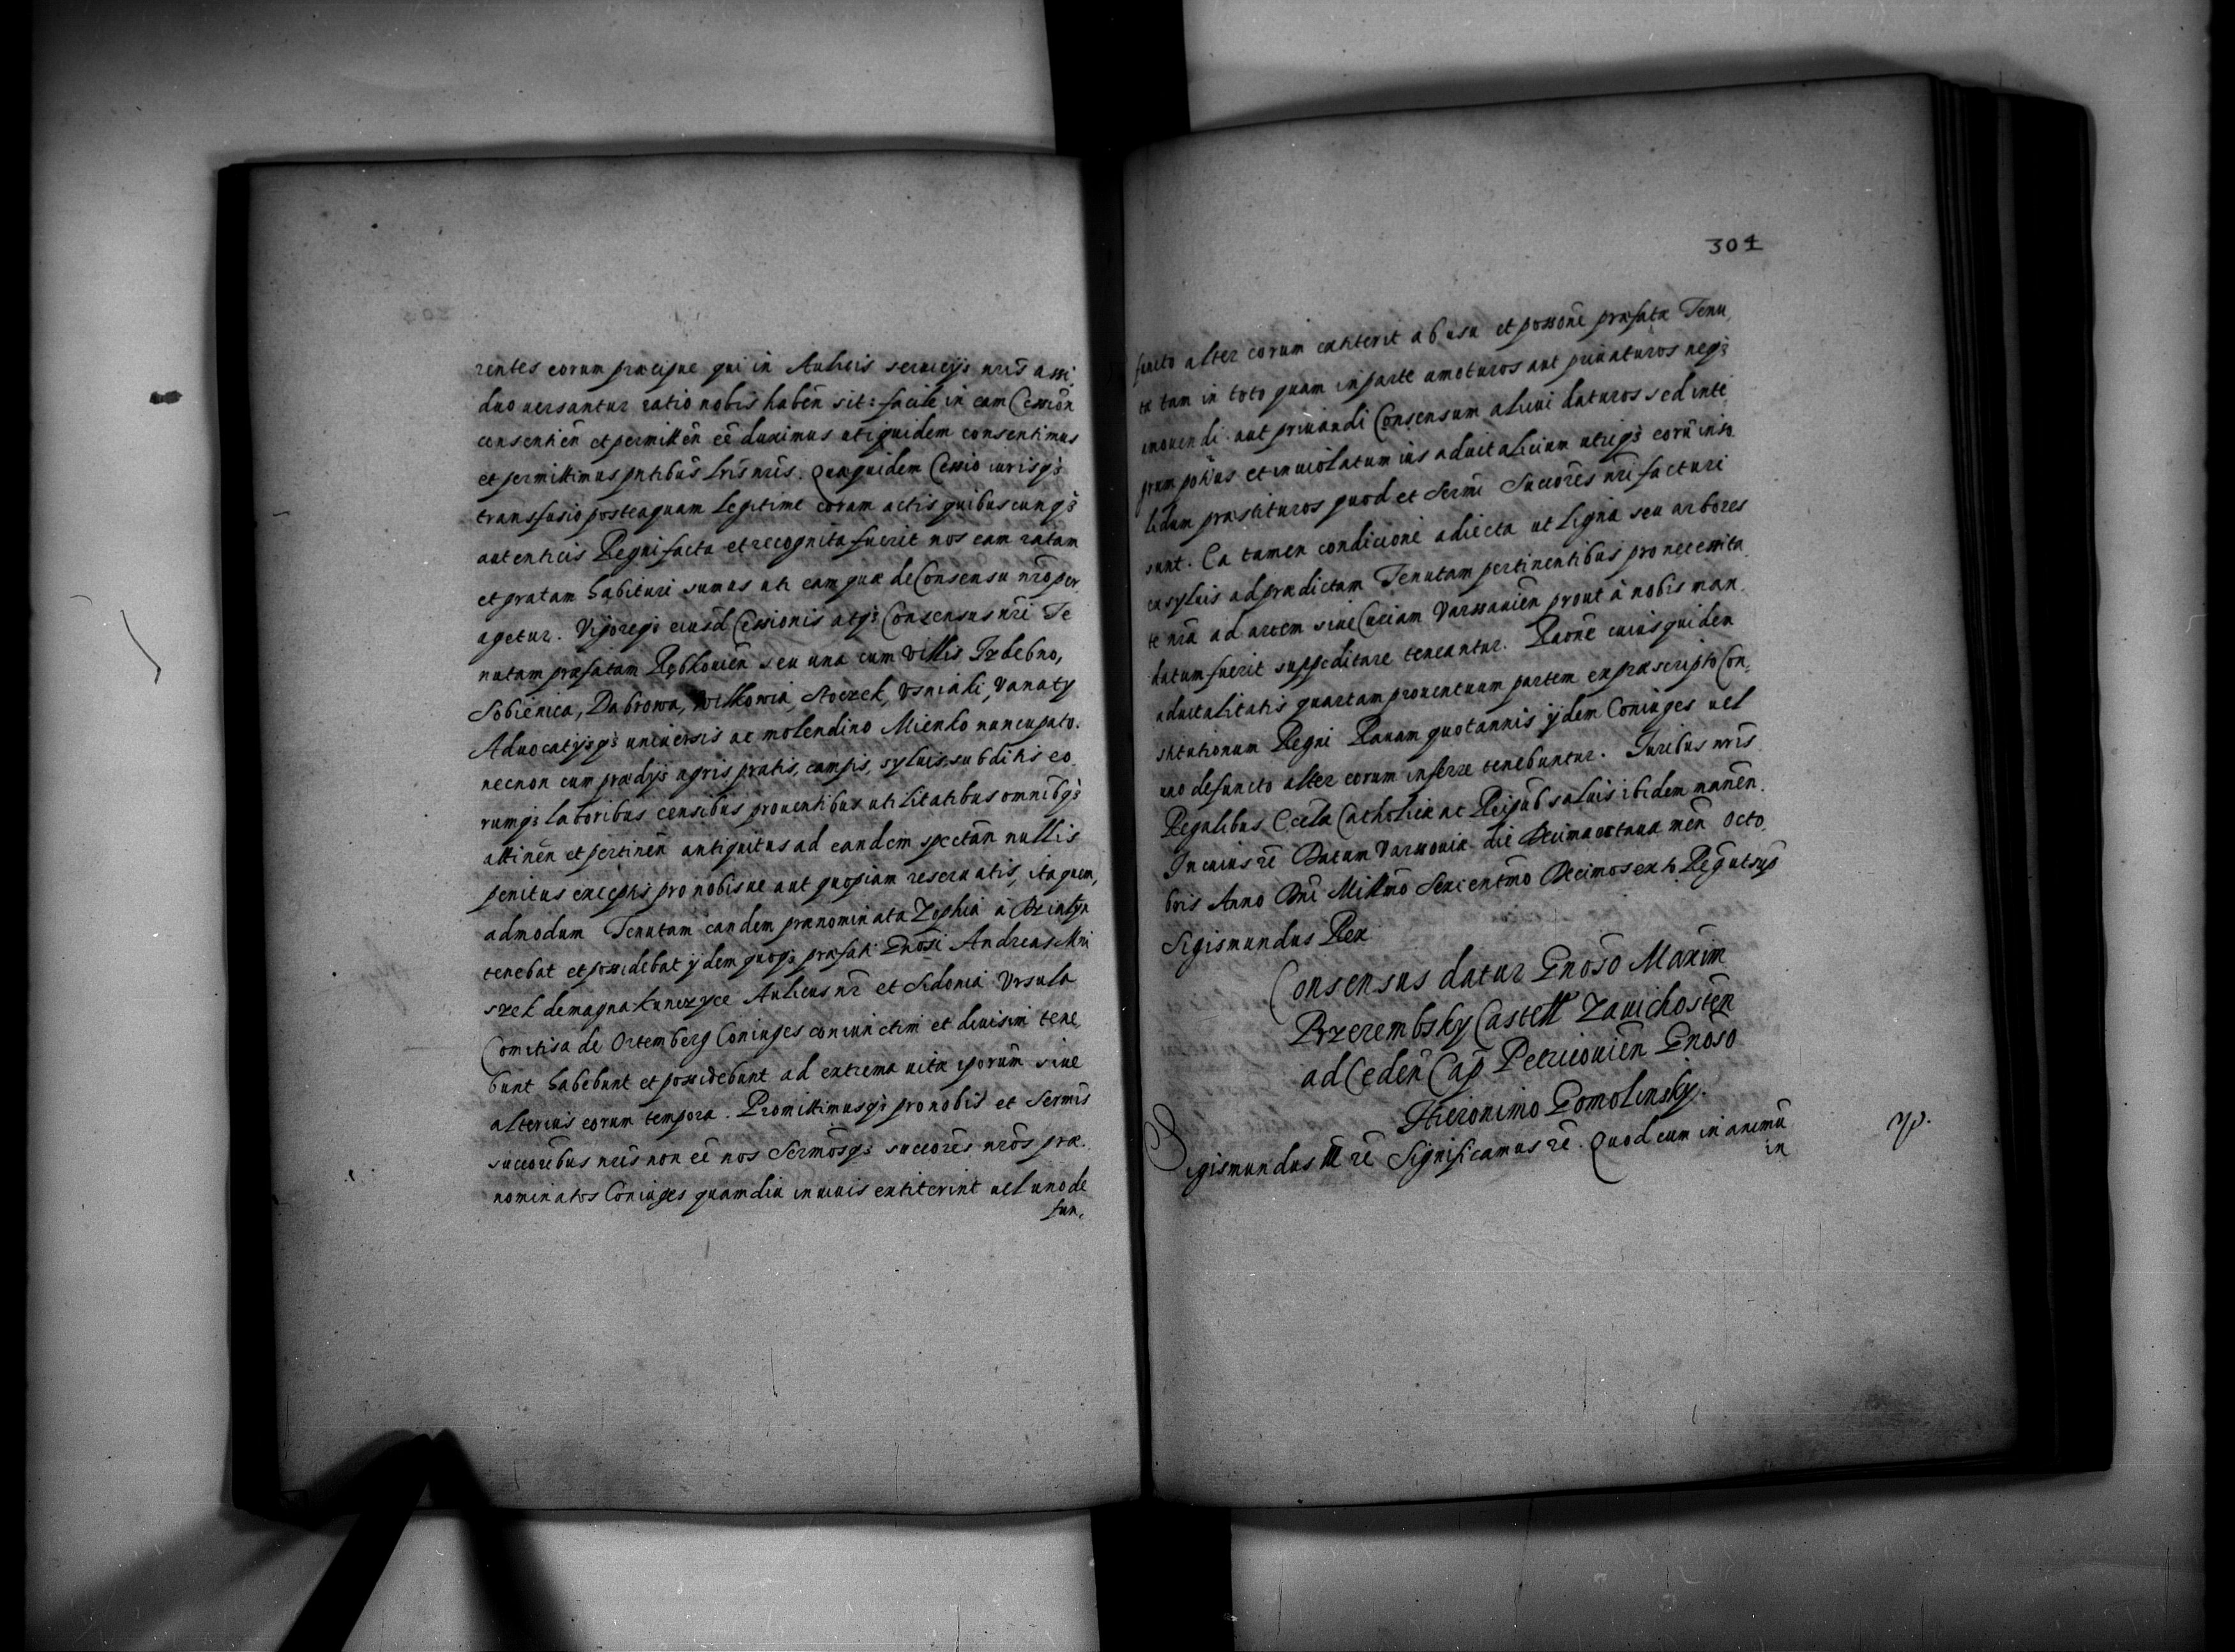 rentes eorum præcipue qui in Aulicis seruicijs nr̃is assi,
duo uersantur ratio nobis habeñ sit: facile in eam Cessioñ
consentieñ et permitteñ eẽ duximus uti quidem consentimus
et permittimus pñtibus lr̃is nr̃is. Quæquidem Cessio iurisq3
transfusio posteaquam legitime coram actis quibuscunq3
autenticis Regni facta et recognita fuerit nos eam ratam
et gratam habituri sumus uti eam quæ de Consensu nr̃o per,
agetur. Vigoreq3 eiusd Cessionis atq3 Consensus nr̃i Te
nutam præfatam Rębkouieñ seu una cum villis Izdebno,
Sobienica, Dabrowa, Wilkowia, Stoczek, Vsniaki, Vanaty
Aduocatijsq3 uniuersis ac molendino Mienko nuncupato.
necnon cum prædijs agris pratis, campis, syluis, subditis eo,
rumq3 laboribus censibus prouentibus utilitatibus omnibq3
attineñ et pertineñ antiquitus ad eandem spectañ nullis
penitus exceptis pro nobisue aut quopiam reseruatis, ita quem,
admodum Tenutam eandem prænominata Zophia a Dzialyn
tenebat et possidebat ijdem quoq3 præfati Gnosi Andreas Mni
szek de magna Kunczyce Aulicus nr̃ et Sidonia Vrsula
Comitisa de Ortemberg Coniuges coniunctim et diuisim tene,
bunt habebunt et possidebunt ad extrema uitæ ipsorum siue
alterius eorum tempora. Promittimusq3 pro nobis et Sermis
successoribus nr̃is non eẽ nos Sermosq3 successores nr̃os præ,
nominatos Coniuges quamdiu in uiuis extiterint uel uno de
fun,
304
functo alter eorum extiterit ab usu et possone præfatæ Tenu,
tæ tam in toto quam in parte amoturos aut priuaturos neq3
mouendi aut priuandi Consensum alicui daturos sed inte
grum potius et inuiolatum ius aduitalicium utriq3 eorũ inso
lidum præstituros quod et Sermi Succores nr̃i facturi
sunt. Ea tamen condicione adiecta ut ligna seu arbores
ex syluis ad prædictam Tenutam pertinentibus pro necessita
te nr̃a ad arcem siue Curiam Varssauieñ prout à nobis man,
datum fuerit suppeditare teneantur. Raone cuius quidem
aduitalitatis quartam prouentuum partem ex præscripto Con,
stitutionum Regni Rauam quotannis ijdem Coniuges uel
uno defuncto alter eorum inferre tenebuntur. Iuribus nr̃is
Regalibus Eccla Catholicæ ac Reipub saluis ibidem maneñ.
In cuius rẽ Datum Varssouiæ die Decima octaua meñ Octo,
bris Anno Dni Millmo Sexcentmo Decimosexto Reg ut sup
Sigismundus Rex
Consensus datur Gnoso Maxim
Przerembsky Castell Zauichosteñ
ad Cedeñ Cap Petricouieñ Gnoso
Hieronimo Gomolinsky.
Sigismundus III rẽ Significamus rẽ. Quod cum in animũ
in